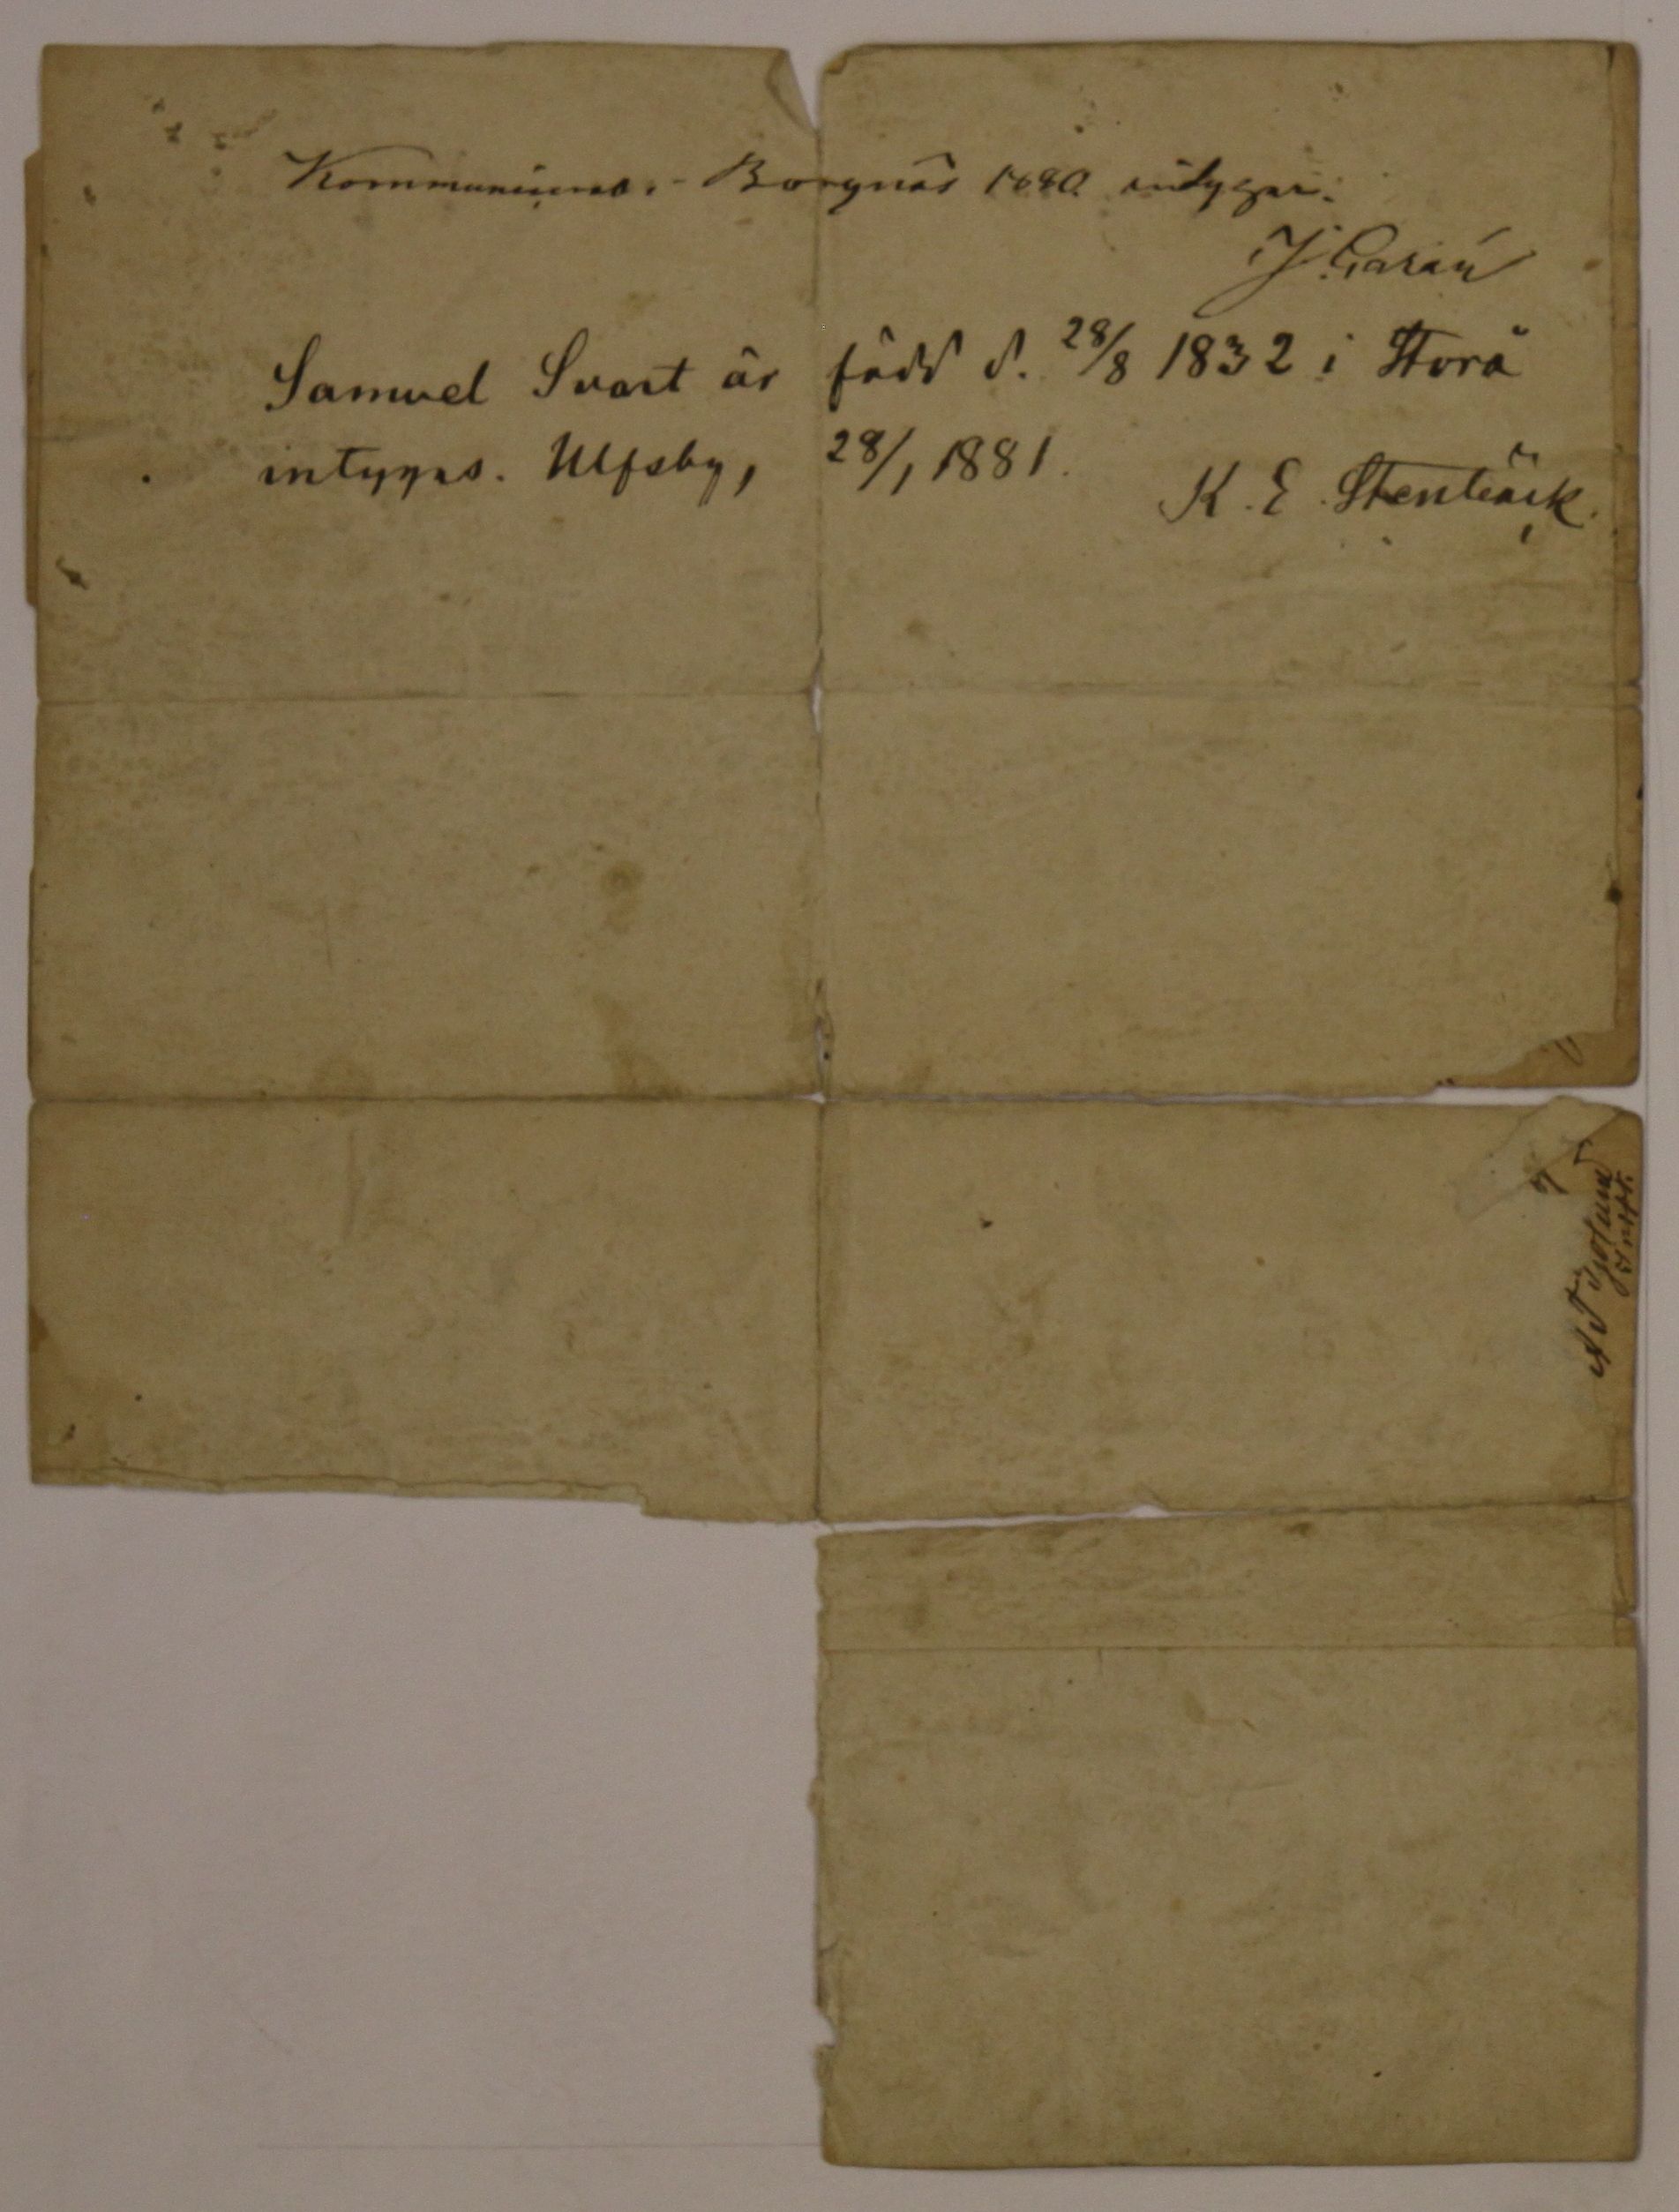 Kommunicerad. - Borgnäs 1880 intygar.
Samuel Svart är född d. 28/8 1832 i Storå
intygas. Ulfsby, 28/1 1881.
K. E. Stenbäck.